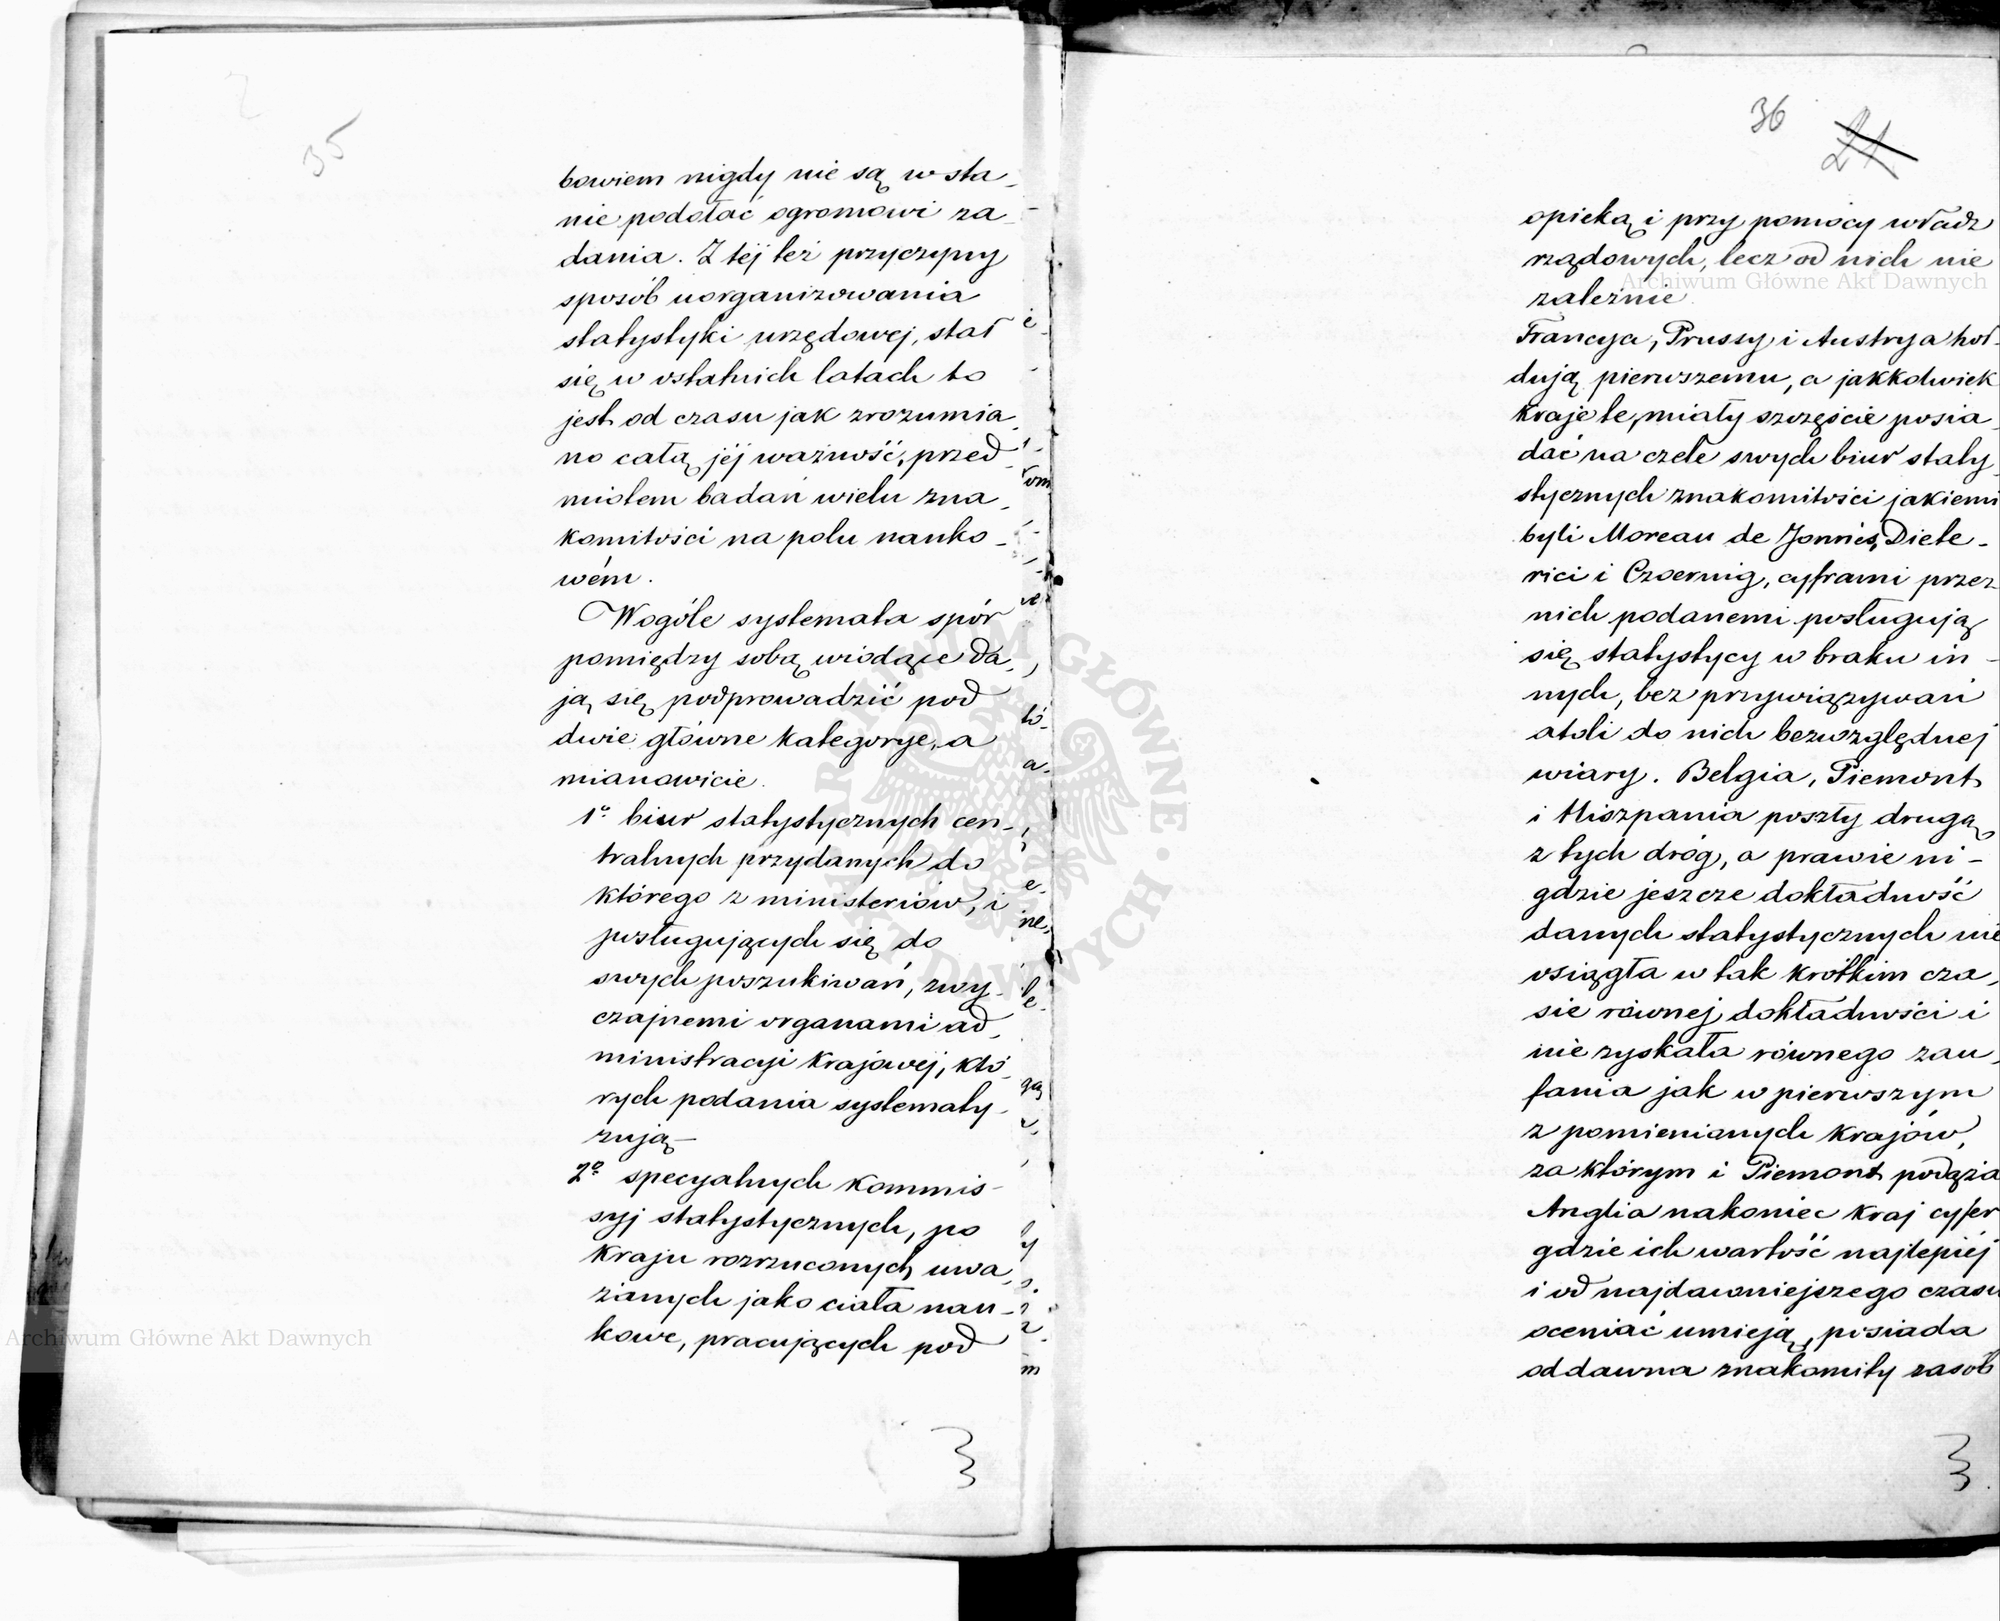 35
bowiem nigdy nie są w sta-
nie podołać ogromowi za-
dania. Z téj też przyczyny
sposób uorganizowania
statystyki urzędowej, stał
się w ostatnich latach to
jest od czasu jak zrozumia-
no całą jéj ważność, przed-
miotem badań wielu zna-
komitości na polu nauko-
wém.
Wogóle systemata spór
pomiędzy sobą wiodące da-
ją się podprowadzić pod
dwie główne kategorye, a
mianowicie.
1º biur statystycznych cen-
tralnych przydanych do
którego z ministeriów, i
posługujących się do
swych poszukiwań, zwy-
czajnemi organami ad-
ministracyi krajowej, któ-
rych podania systematy-
zują—
2º specyalnych kommis-
syj statystycznych, po
kraju rozrzuconych uwa-
żanych jako ciała nau-
kowe, pracujących pod
36
21
opieką i przy pomocy władz
rządowych, lecz od nich nie
zależnie.
Francya, Prussy i Austrya hoł-
dują pierwszemu, a jakkolwiek
kraje te, miały szczęście posia-
dać na czele swych biur staty-
stycznych znakomitości jakiemi
byli Moreau de Jonnès, Diete-
rici i Czoernig, cyframi przez
nich podanemi posługują
się statystycy w braku in-
nych, bez przywiązywań
atoli do nich bezwzględnej
wiary. Belgia, Piemont
i Hiszpania poszły drugą
z tych dróg, a prawie ni-
gdzie jeszcze dokładność
danych statystycznych nie
osiągła w tak krótkim cza-
sie równej dokładności i
nie zyskała równego zau-
fania jak w pierwszym
z pomienianych krajów,
za którym i Piemont podąża
Anglia nakoniec kraj cyfer
gdzie ich wartość najlepiéj
i od najdawniejszego czasu
oceniać umieją, posiada
oddawna znakomity zasób
Archiwum Główne Akt Dawnych
Archiwum Główne Akt Dawnych
ARCHIWUM GŁÓWNE AKT DAWNYCH